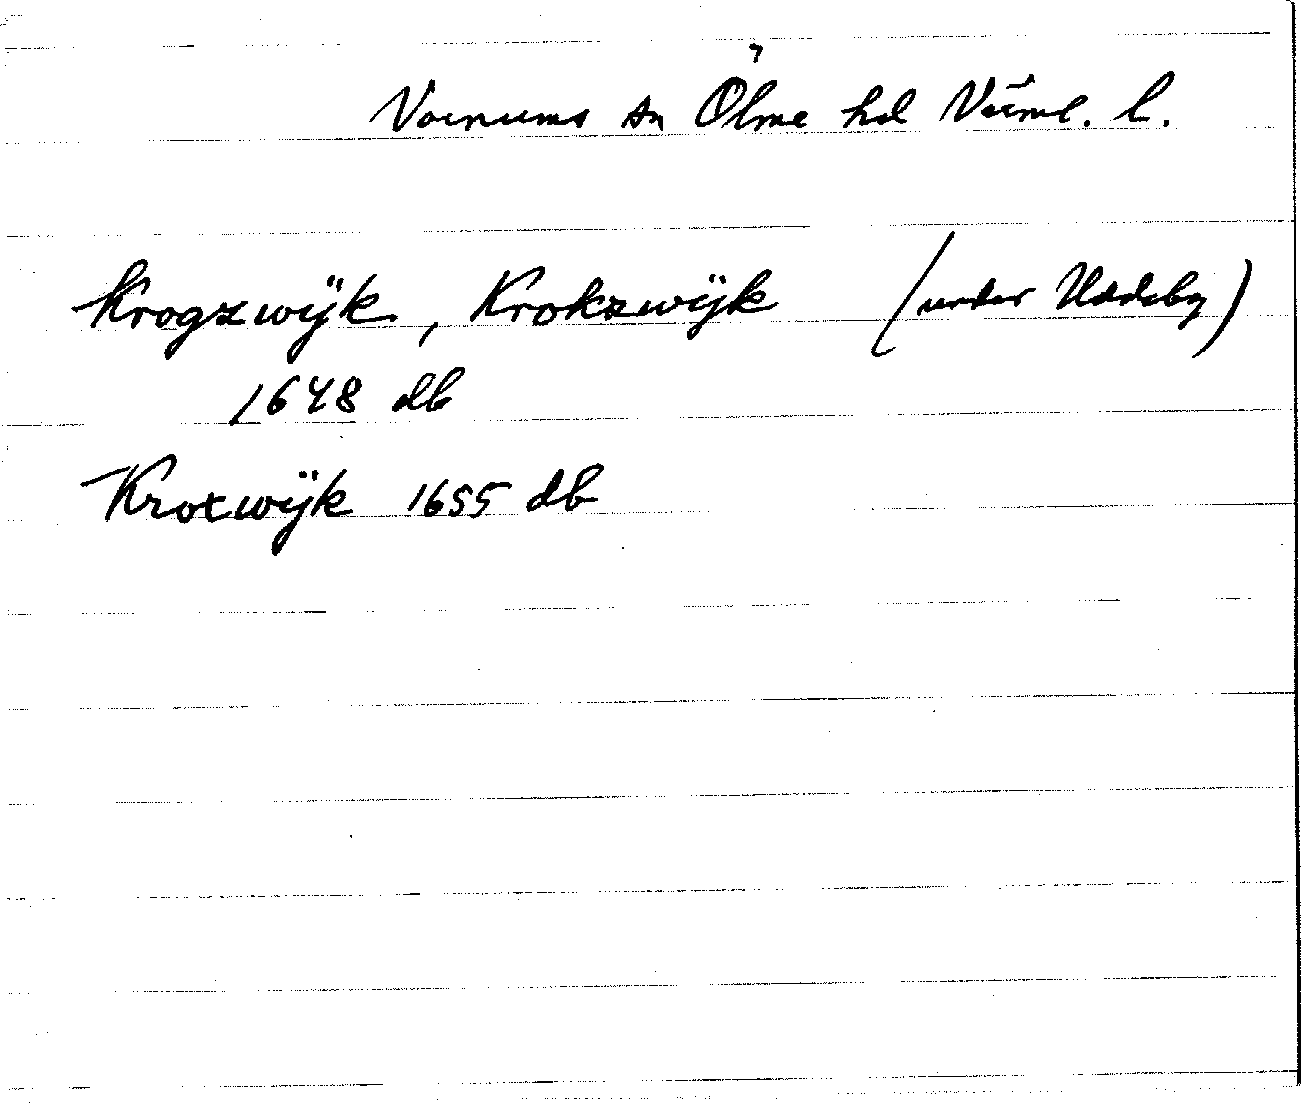 Varnums sn Ölme hd Värml. l.
Krogzwÿk, Krokzwÿk (under Uddeby)
1648 db
Kroxwÿk 1655 db